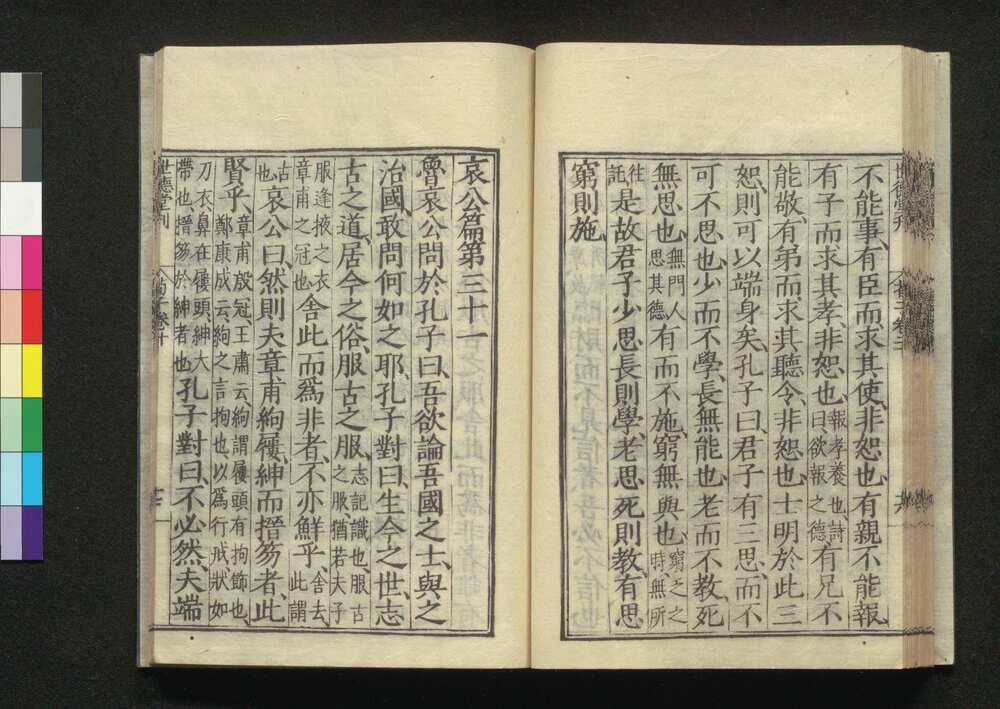 世德堂刊
不能事、有臣而求其使、非恕也、有親不能報
有子而求其孝、非恕也、報孝養也詩曰、欲報之德有兄不
能敬、有弟而求其聽令、非恕也、士明於此三
恕、則可以端身矣、孔子曰、君子有三思、而不
可不思也、少而不學、長無能也、老而不教、死
無思也、無門人思其德有而不施、窮無與也、窮之之時無所
往託是故君子少思長則學、老思死則教、有思
窮則施
哀公篇第三十一
魯哀公問於孔子曰、吾欲論吾國之士、與之
治國、敢問何如之耶、孔子對曰、生今之世、志
古之道、居今之俗、服古之服、志記識也、服古之服、猶若夫子
服逢掖之衣章甫之冠也舍此而爲非者、不亦鮮乎、舍去、此謂
古也哀公曰、然則夫章甫絇屨、紳而搢笏者、此
賢乎、章甫殷冠、王肅云、絇謂屨頭有拘飾也、鄭康成云、絇之言拘也、以爲行戒、狀如
刀衣鼻、在屨頭、紳大帶也、搢笏於紳者也孔子對曰、不必然、夫端
世德堂刊